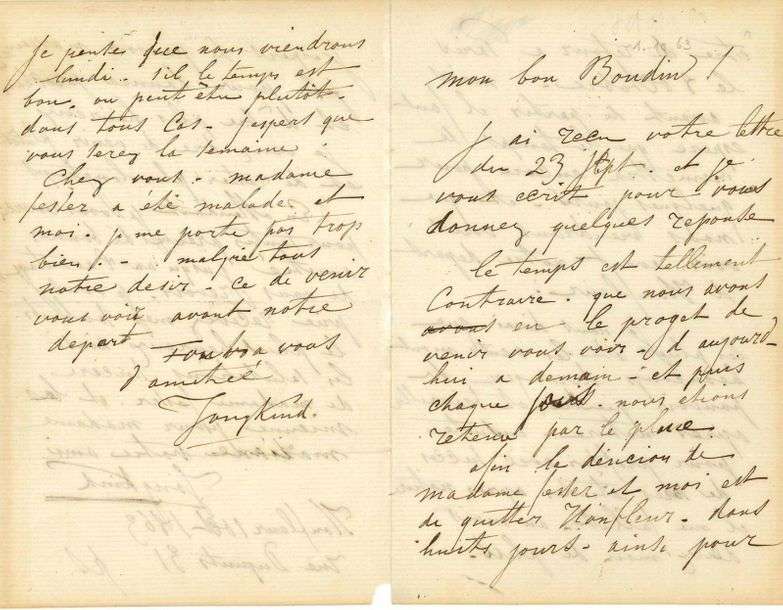 mon bon Boudin !
J ai recu votre lettre
du 23 Sept. et je
vous ecrit pour vous
donnez quelques reponse
le temps est tellement
Contraire. que nous avons
avons eu le proget de
venir vous voir - d aujourd-
hui a demain - et puis
chaque jours. nous etions
retenue par le pluie
afin la desicion de
madame fesser et moi est
de quitter Honfleur - dans
huits jours - ainsi pour
Je pense que nous viendrons
lundi - s'il le temps est
bon. ou peut être plutôt -
dans tous Cas - j'espere que
vous serez la semaine
Chez vous - madame
fesser a été malade et
moi - je me porte pas trop
bien - malgré tous
notre desir - ce de venir
vous voir avant notre
depart Tout a vous
d'amitié
Jongkind.